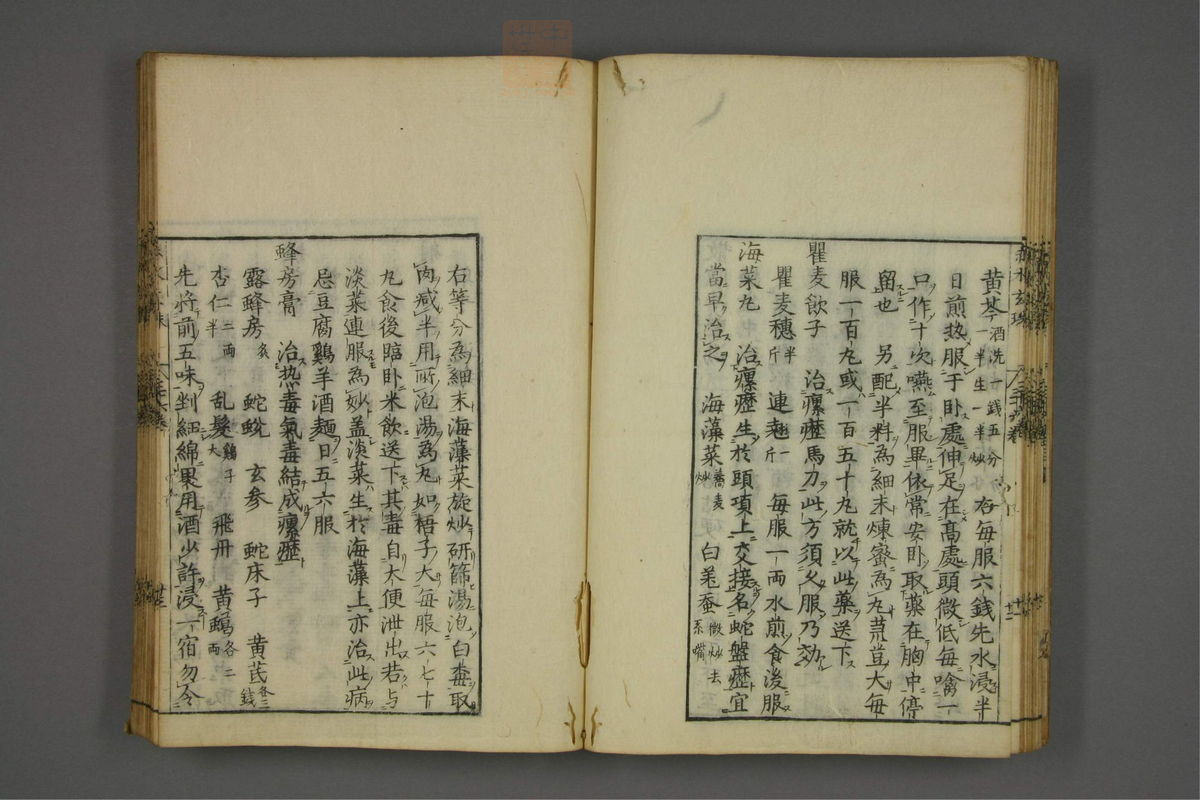 黄芩酒洗一錢五分一半生一半炒 右每服六錢先水浸半
日煎热服于卧處伸足在髙處頭微低每噙一
只作十次嚥至服畢依常安卧取藥在胸中停
留也 另配半料為細末煉蜜為丸荳大每
服一百丸或一百五十丸就以此藥送下
瞿麦飲子 治瘰癧馬刀此方須乆服乃効
瞿麦穗半斤 連翹一斤 每服一両水煎食後服
海菜丸 治瘰癧生於頭項上交接名蛇盤癧宜
當早治之 海藻菜蕎麦炒 白姜蚕微炒去系嘴
右等分為細末海藻菜旋炒研篩湯泡白梅取
肉减半用所泡湯為丸如梧子大每服六七十
丸食後臨卧米飲送下其毒自大便泄出若与
淡菜連服為妙盖淡菜生於海藻上亦治此病
忌豆腐鷄羊酒麺日五六服
蜂房膏 治热毒氣毒結成瘰癧
露蜂房炙 蛇蛻 玄参 蛇床子 黄芪各三錢
杏仁二両半 乱髮鷄子大 飛丹 黄蝋各二両
先将前五味剉細綿裹用酒少許浸一宿勿令